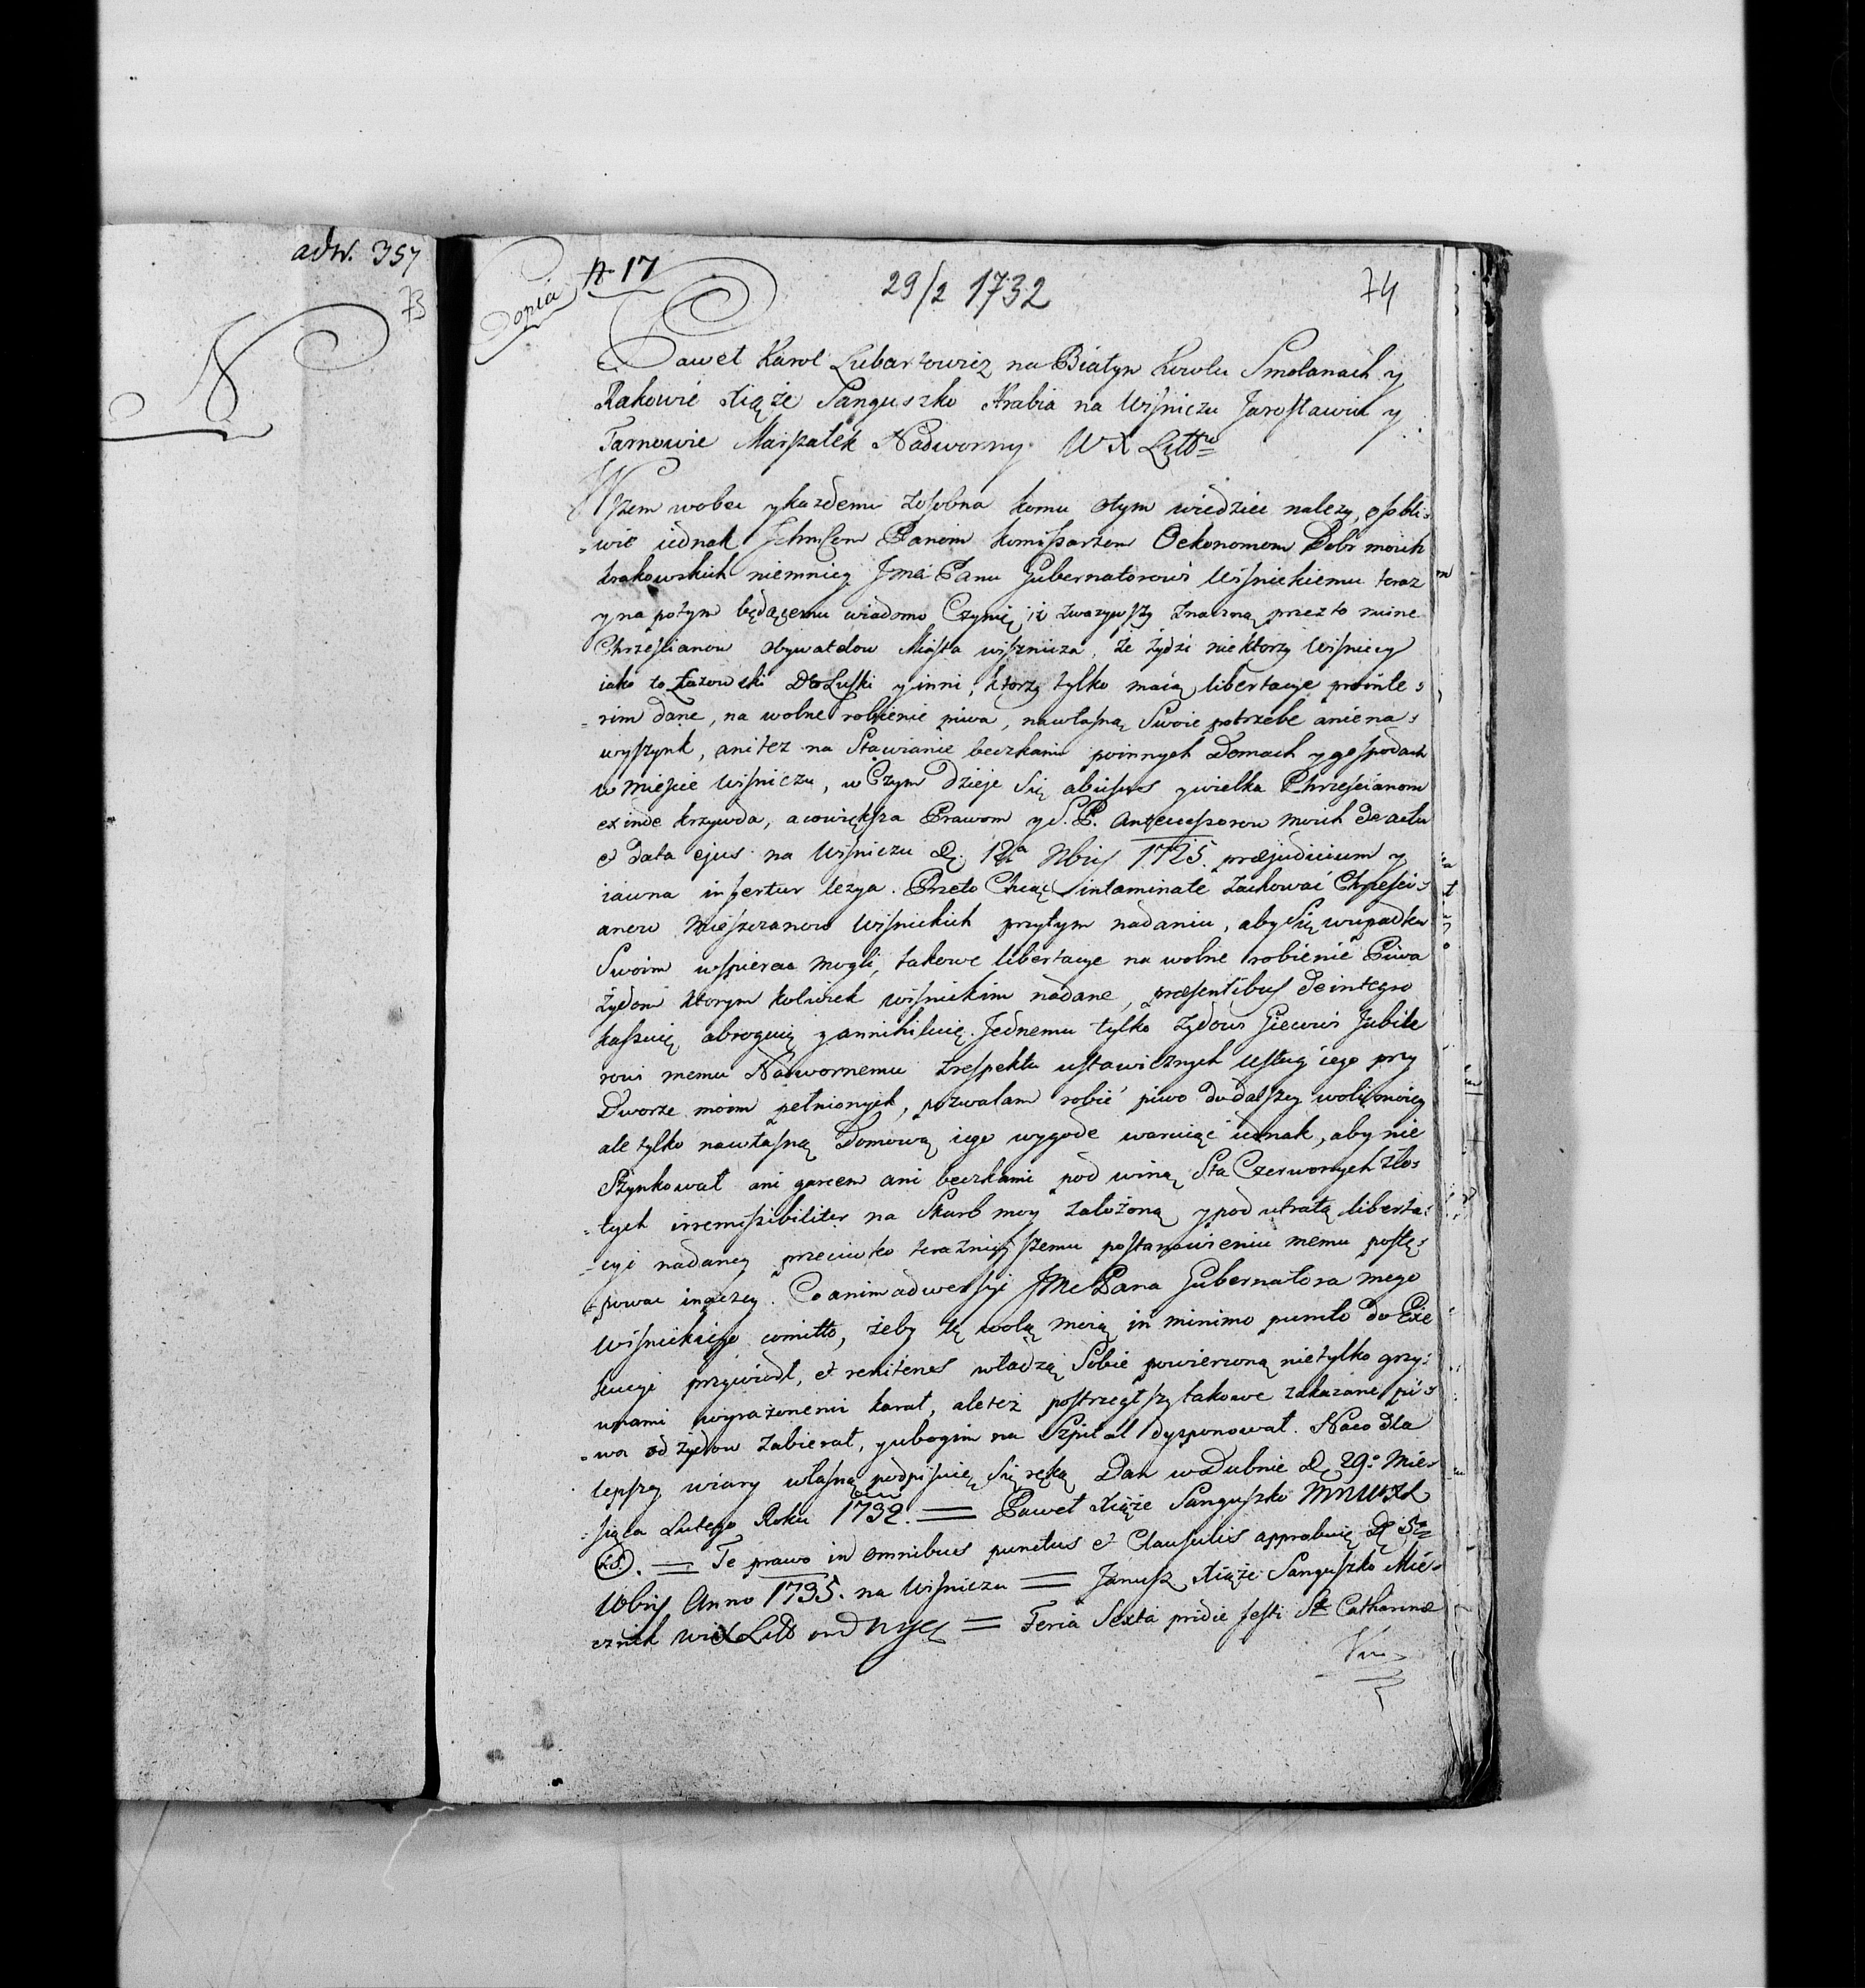 adw. 357
73
Copia
N 17
29/2 1732
74
Paweł Karol Lubartowicz na Białym Kowlu Smolanach y
Rakowie Xiąże Sanguszko Hrabia na Wiśniczu Jarosławiu y
Tarnowie Marszałek Nadworny W X Litt
Wszem wobec y każdemu zosobna komu otym wiedziec nalezy, osobli=
=wie iednak Panom Kommissarzom Oekonomom Dobr moich
krakowskich niemniey Jmci Panu Gubernatorowi Wiśnickiemu teraz
y na potym będącemu wiadomo Czynię, iż zwazywszy znaczną przez to ruine
Chrześcianow obywatelow Miasta wisznicza, że żydzi niektorzy Wisniccy
iako to Łazowski Dłuski y inni, ktorzy tylko maią libertacye
=rim dane, na wolne robienie piwa, na własną Swoie potrzebe anie na=
wyszynk, ani tez na Stawianie beczkami poinnych Domach y gospodach
w miescie Wiśniczu, w Czym dzieje Się abusus y wielka Chrzescianom
exinde krzywda, a co większa Prawom y S. P. Antecessorow moich de actu
et data ejus na Wiśniczu D. 12a Xbris 1725 praejudicium y
iawna infertur lezya. Przeto Chcąc intaminate zachować Chrzesci=
anow Mieszczanow Wiśnickich przytym nadaniu, aby Się wupadku
Swoim wspierac mogli, takowe libertacye na wolne robienie Piwa
żydom ktorym kolwiek wiśnickim nadane, praesentibus de integro
kassuię abroguię y annihiluię. Jednemu tylko żydowi Giecowi Jubile
rowi memu Nadwornemu z respektu ustawicznych usług iego przy
Dworze moim pełnionych, pozwalam robić piwo do dalszey woli moiey
ale tylko na własną Domową iego wygode waruiąc iednak, aby nie
Szynkował ani garcem ani beczkami pod winą Sta Czerwonych zło=
=tych irremissibiliter na Skarb moy założoną y pod utratą liberta=
=cyi nadaney przeciwko teraznieyszemu postanowieniu memu postę=
=powac inaczey. Co animadwersyi JMc Pana Gubernatora mego
Wiśnickiego comitto, żeby tę wolą moią in minimo puncto do Exe
kucyi przywiodł, et renitenes władzą Sobie powierzoną nietylko grzy=
wnami wyrażonemi karał, ale tez postrzegłszy takowe zakazane pi=
=wa od żydow zabierał, y ubogim na Szpital dysponował. Na co dla
lepszey wiary własną podpisuię Się ręką Dan w Dubnie D. 29o Mie=
=siąca Lutego Roku 1732. = Paweł Xiąże Sanguszko MNWXL
LS. = Te prawo in omnibus punctis et Clausulis approbuię D. 5a
Xbris Anno 1735. na Wiśniczu = Janusz Xiąże Sanguszko Mie=
cznik = Feria Sexta pridie festi St. Catharinae